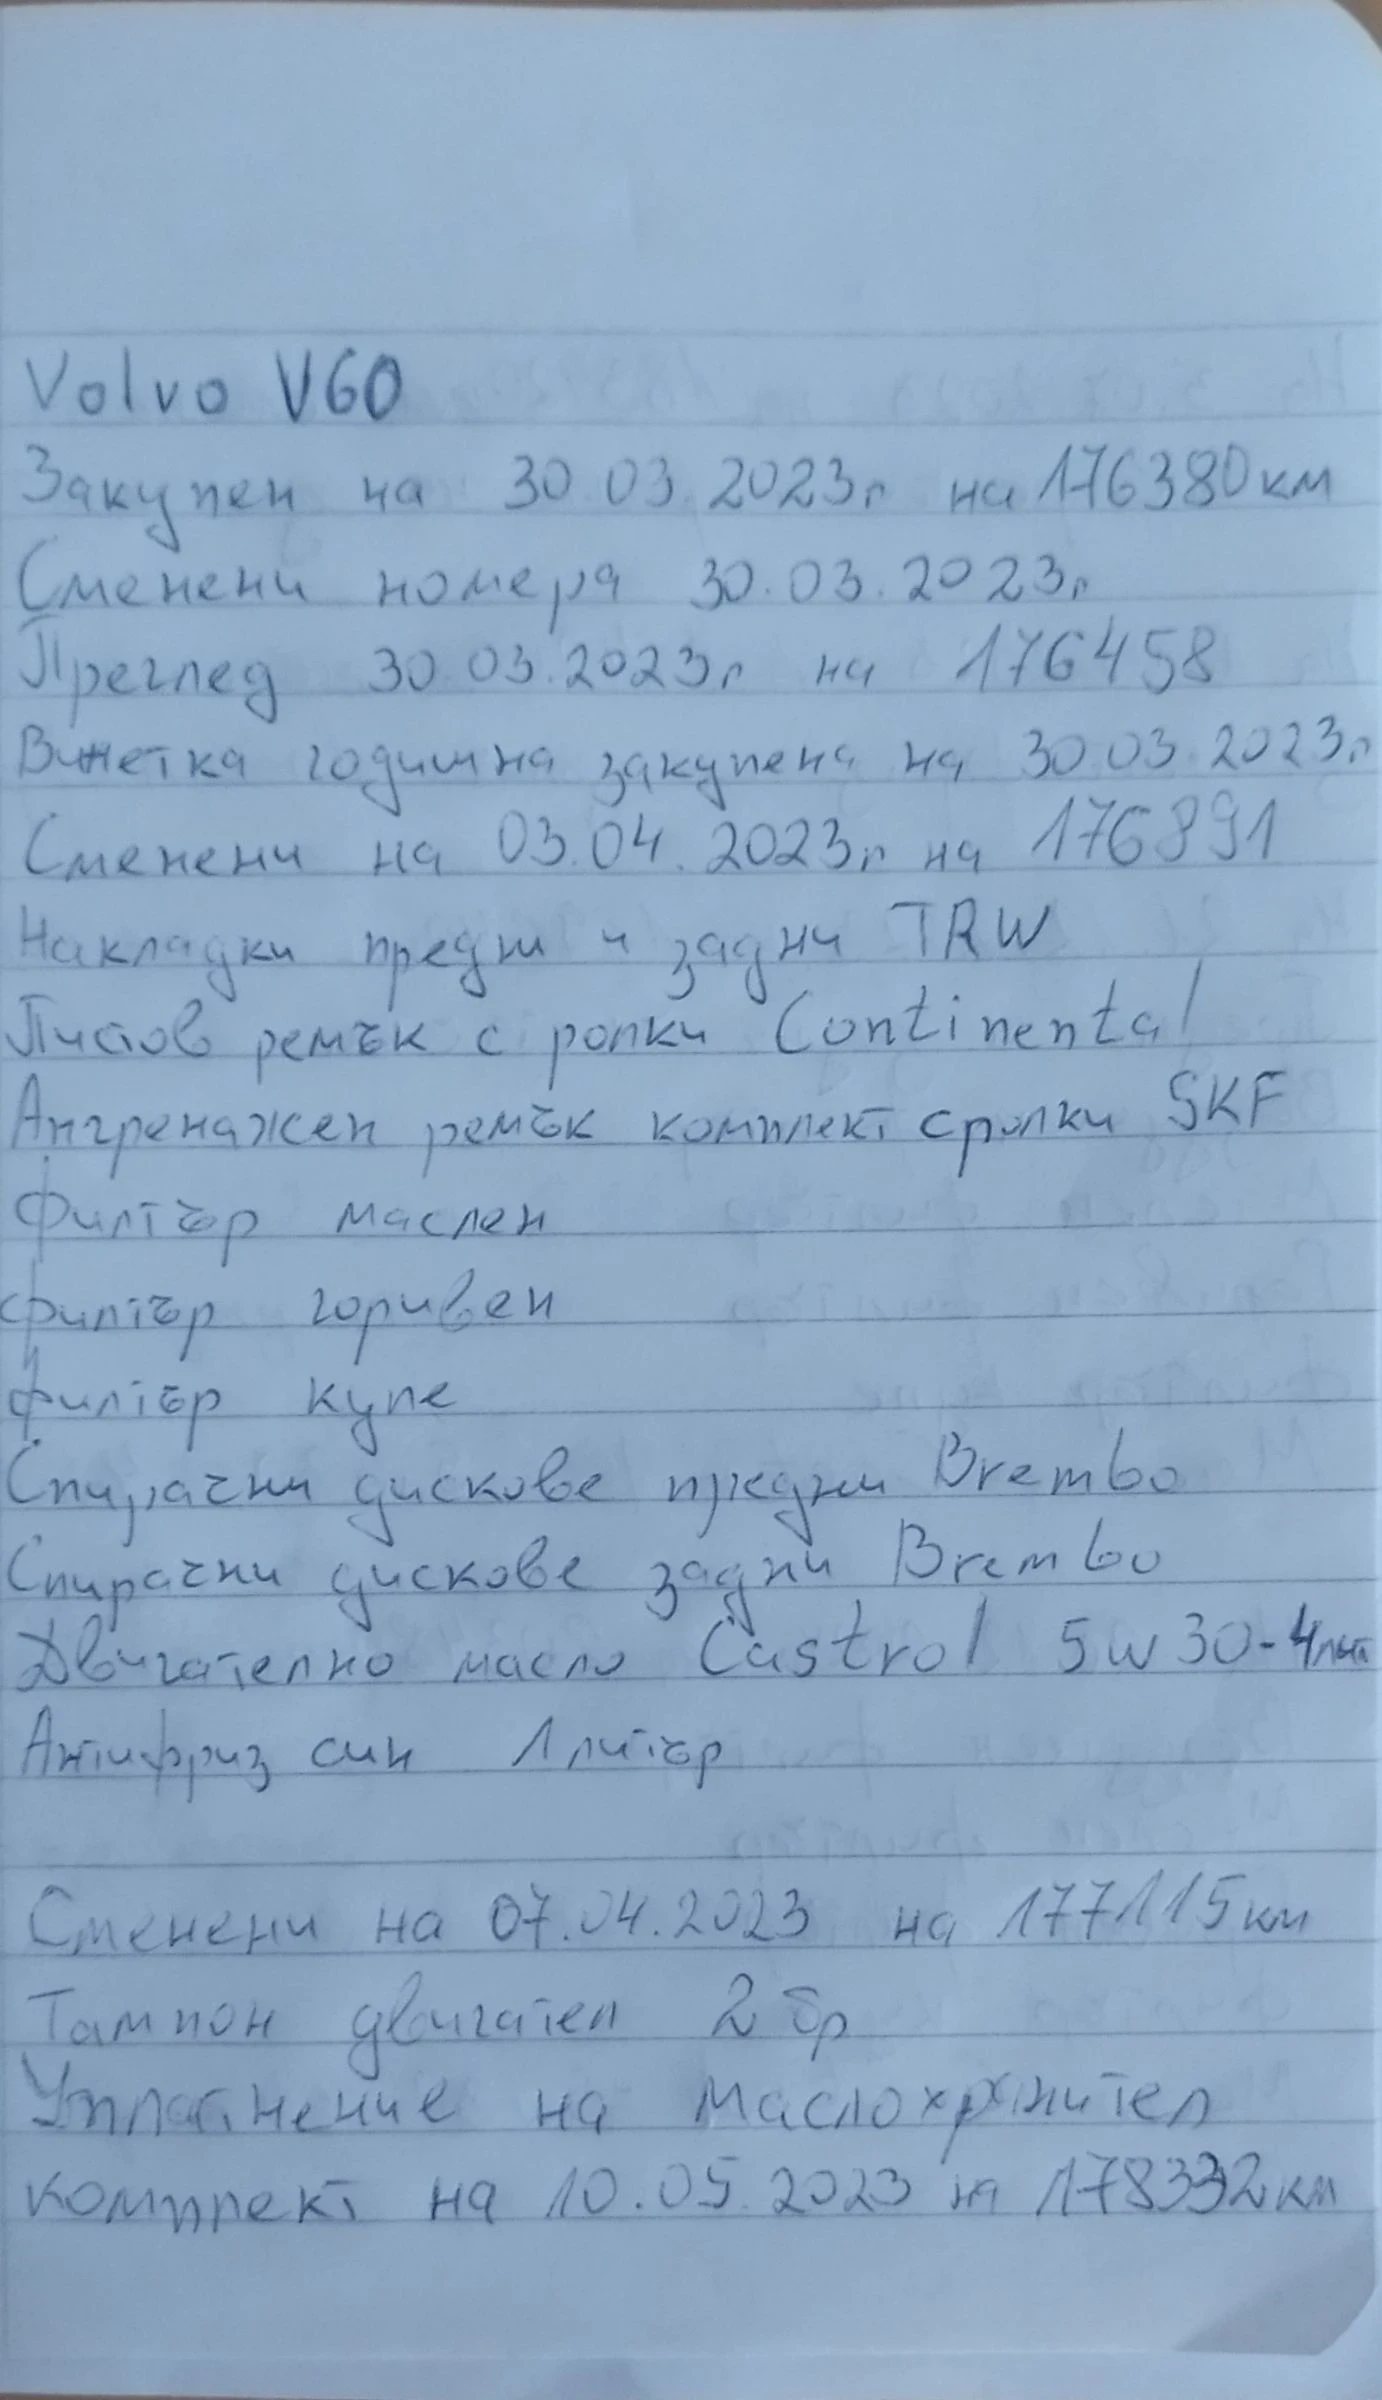 Volvo V60
Закупен на 30.03.2023г на 176380км
Сменени номера 30.03.2023г
Преглед 30.03.2023г на 176458
Винетка годишна закупена на 30.03.2023г
Сменени на 03.04.2023г на 176891
Накладки предни и задни TRW
Пистов ремък с ролки Continental
Ангренажен ремък комплект с ролки SKF
Филтър маслен
филтър горивен
филтър купе
Спирачни дискове предни Brembo
Спирачни дискове задни Brembo
Двигателно масло Castrol 5w30-4лит
Антифриз син 1литър
Сменени на 07.04.2023 на 177115км
Тампон двигател 2бр
Уплатнение на маслохранител
комплект на 10.05.2023 на 178332км